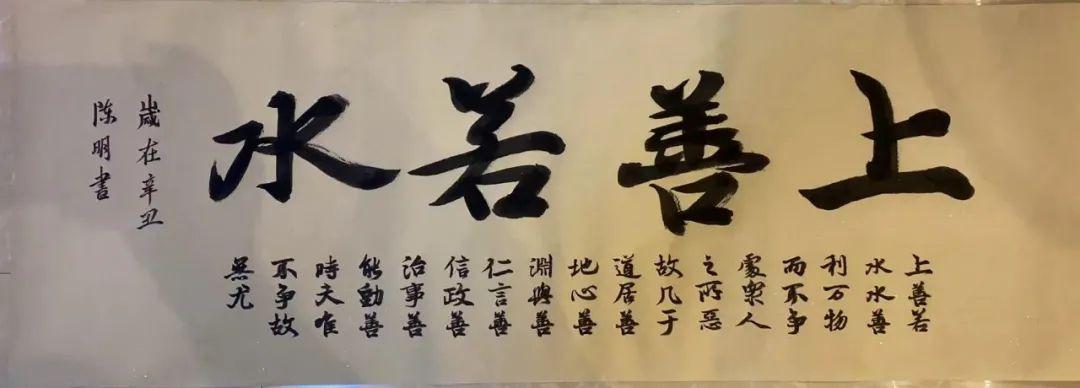 上善若水
上善若
水水善
利万物
而不争
處衆人
之所惡
故几于
道居善
地心善
淵與善
仁言善
信政善
治事善
能動善
時夫唯
不争故
無尤
歲在辛丑
陈明書